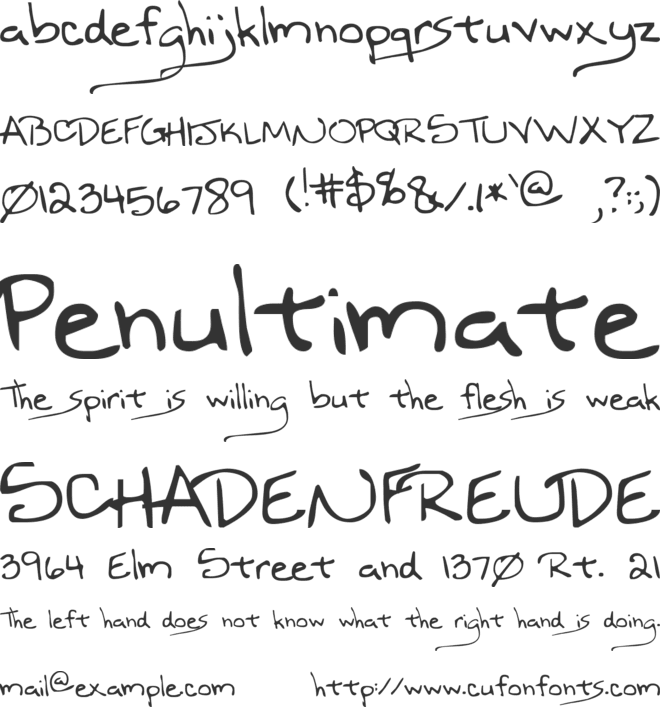 abcdefghijklmnopqrstuvwxyz
ABCDEFGHIJKLMNOPQRSTUVWXYZ
0123456789 (!#$%&/.|*`@ ,?:;)
Penultimate
The spirit is willing but the flesh is weak
SCHADENFREUDE
3964 Elm Street and 1370 Rt. 21
The left hand does not know what the right hand is doing.
mail@example.com http://www.cufonfonts.com